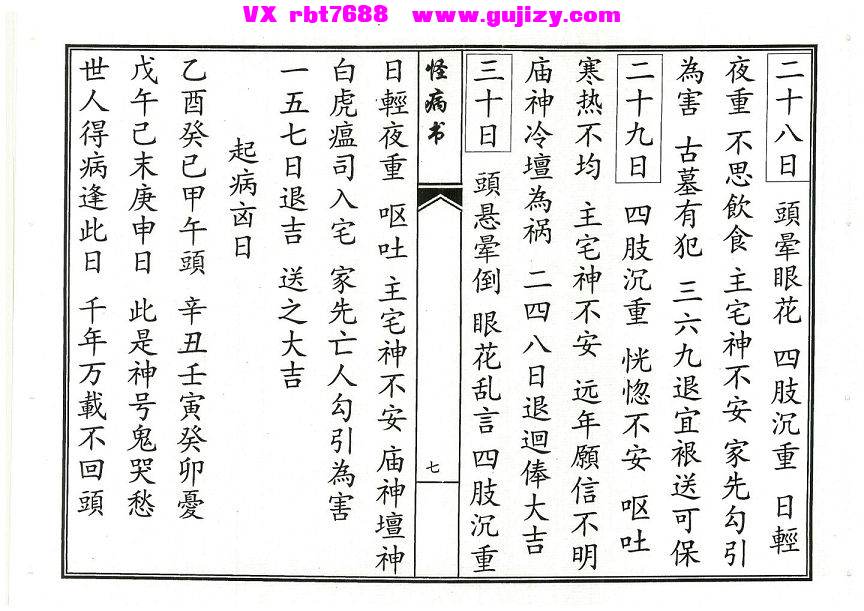 VX rbt7688 www.gujizy.com
二十八日 頭暈眼花 四肢沉重 日輕
夜重 不思飲食 主宅神不安 家先勾引
為害 古墓有犯 三六九退宜裉送可保
二十九日 四肢沉重 恍惚不安 呕吐
寒热不均 主宅神不安 远年願信不明
庙神冷壇為祸 二四八日退迴俸大吉
三十日 頭悬暈倒 眼花乱言 四肢沉重
怪病书
七
日輕夜重 呕吐 主宅神不安 庙神壇神
白虎瘟司入宅 家先亡人勾引為害
一五七日退吉 送之大吉
起病凶日
乙酉癸巳甲午頭 辛丑壬寅癸卯憂
戊午己未庚申日 此是神号鬼哭愁
世人得病逢此日 千年万載不回頭